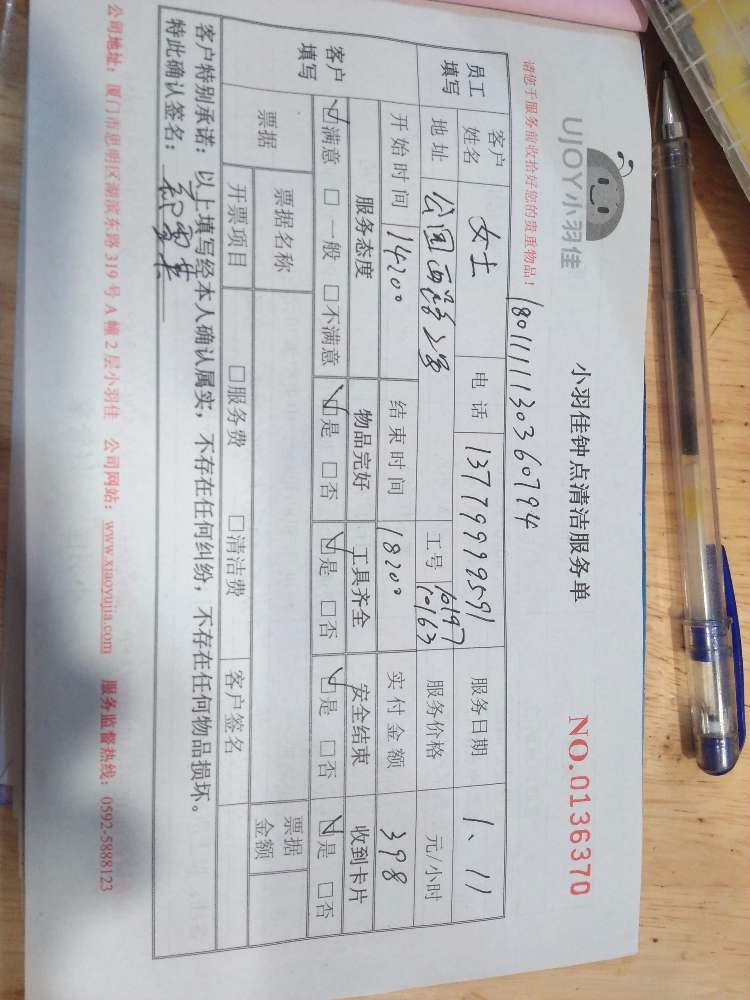 UJOY小羽佳
小羽佳钟点清洁服务单
NO.0136370
请您于服务前收拾好您的贵重物品!
18011111130360794
员工填写 客户姓名 女士 电话 13779999591 服务日期 1、11
地址 公园西路2号 工号 10197 10163 服务价格 元/小时
开始时间 1420 结束时间 1820 实付金额 398
客户填写 服务态度 物品完好 工具齐全 安全结束 收到卡片
☑满意 □一般 □不满意 ☑是 □否 ☑是 □否 ☑是 □否 ☑是 □否
票据 票据名称 票据金额
开票项目 □服务费 □清洁费 客户签名
客户特别承诺:以上填写经本人确认属实,不存在任何纠纷,不存在任何物品损坏。
特此确认签名:
公司地址:厦门市思明区湖滨东路319号A幢2层小羽佳 公司网站:www.xiaoyujia.com 服务监督热线:0592-5888123